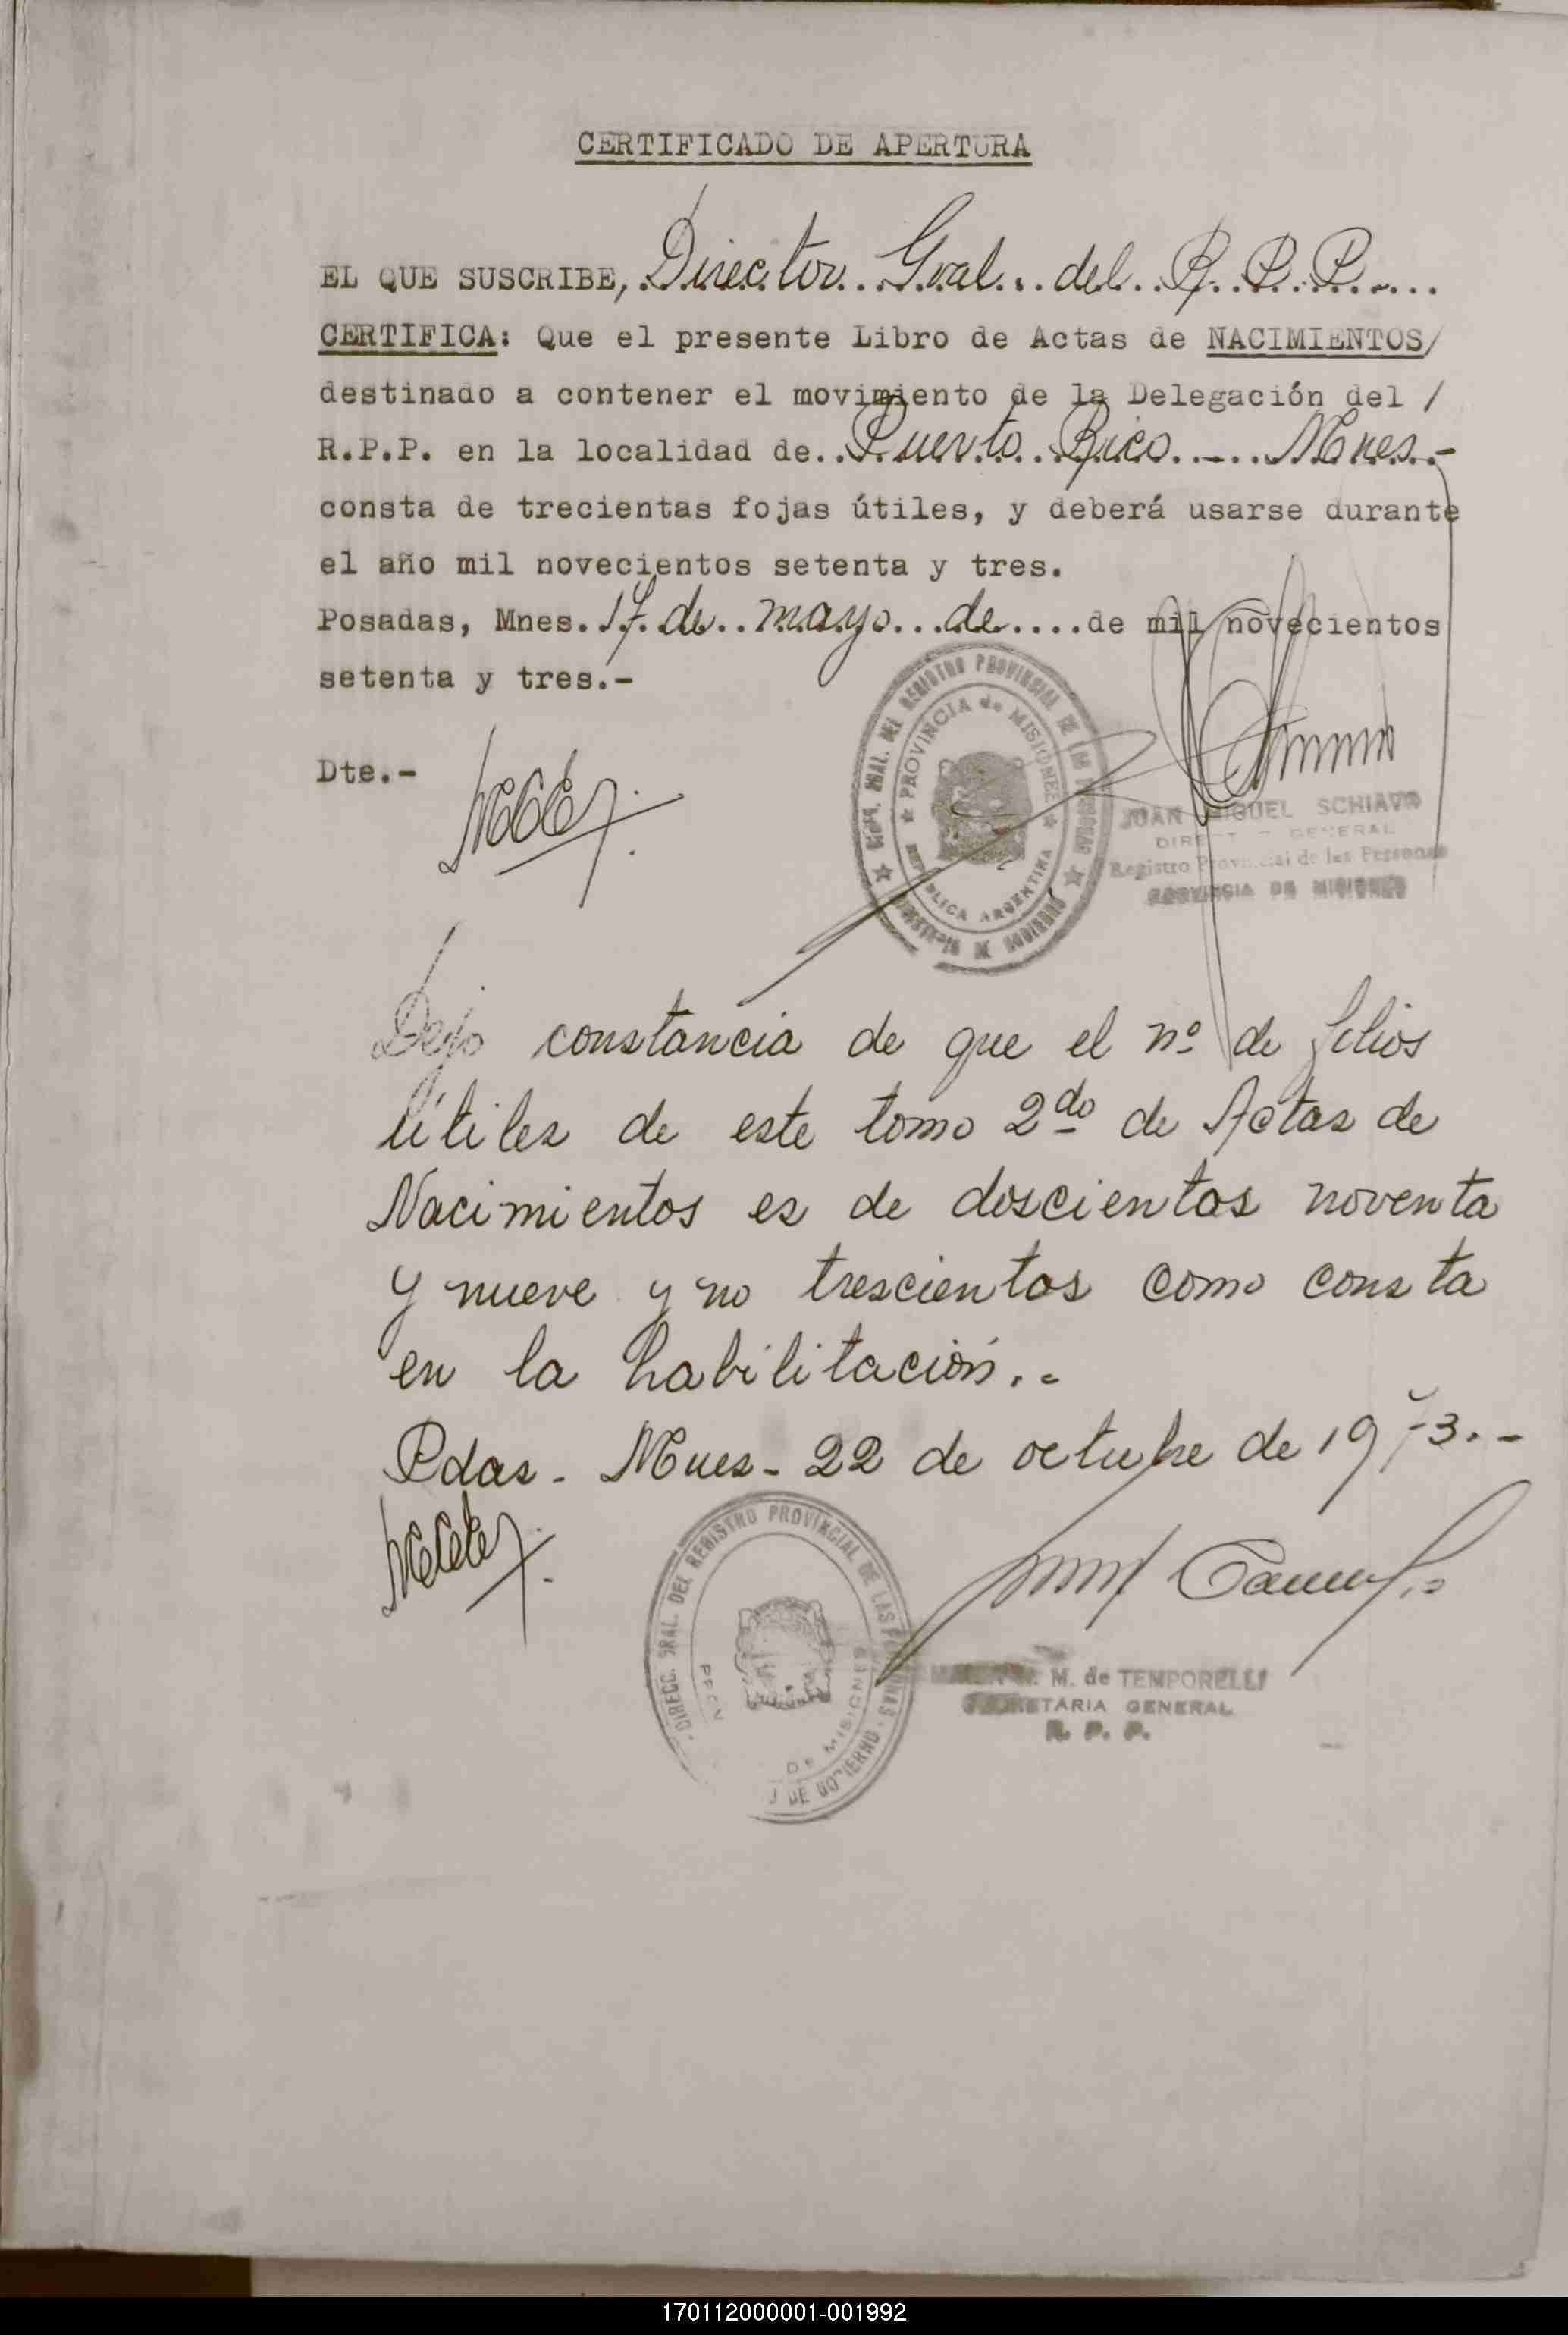 CERTIFICADO DE APERTURA
EL QUE SUSCRIBE, Director Gral. del R. P. P.
CERTIFICA: Que el presente Libro de Actas de NACIMIENTOS/
destinado a contener el movimiento de la Delegación del /
R.P.P. en la localidad de Puerto Rico - Mnes.-
consta de trecientas fojas útiles, y deberá usarse durante
el año mil novecientos setenta y tres.
Posadas, Mnes. 17 de mayo de de mil novecientos
setenta y tres.-
Dte.-
DEL REGISTRO PROVINCIAL DE LAS PERSONAS
PROVINCIA de MISIONES
REPUBLICA ARGENTINA
MINISTERIO DE GOBIERNO
JUAN MIGUEL SCHIAVO
DIRECTOR GENERAL
Registro Provincial de las Personas
PROVINCIA DE MISIONES
Dejo constancia de que el nº de folios
útiles de este tomo 2do de Actas de
Nacimientos es de doscientos noventa
y nueve y no trescientos como consta
en la habilitación.-
Pdas - Mnes - 22 de octubre de 1973.-
DIRECC. GRAL. DEL REGISTRO PROVINCIAL DE LAS PERSONAS
DE GOBIERNO
PROV DE MISIONES
M. de TEMPORELLI
SECRETARIA GENERAL
R. P. P.
170112000001-001992